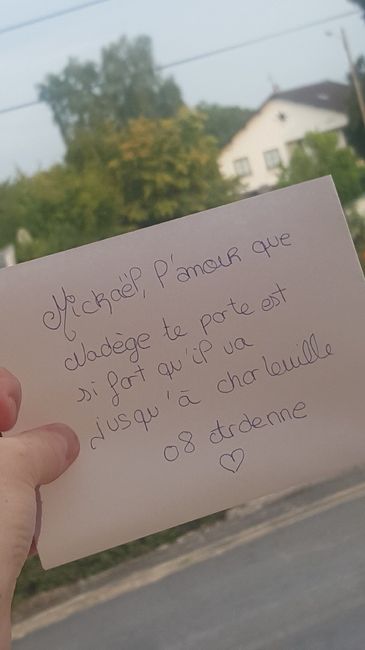 Mickaël, l'amour que
Nadège te porte est
si fort qu'il va
jusqu'à charleville
08 Ardenne
♡